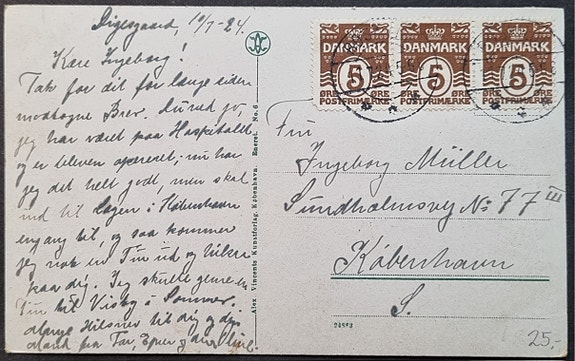 10/7-24.
Kære Ingeborg!
Tak for dit for længe siden
modtagne Brev. Du ved jo,
jeg har været paa Hospitalet
og er bleven opereret; nu har
jeg det helt godt, men skal
ind til Lægen i København
engang til, og saa kommer
jeg nok en Tur ud og hilser
paa dig. Jeg skulde gerne en
Tur til Visby i Sommer.
Hilsner til dig og din
Mand fra Far,
DANMARK
5
ØRE
POSTFRIMÆRKE
DANMARK
5
ØRE
POSTFRIMÆRKE
DANMARK
5
ØRE
POSTFRIMÆRKE
Alex Vincents Kunstforlag, København. Eneret. No. 6
Fru
Ingeborg Müller
Sundholmsvej No 77 III
København
S.
25,-